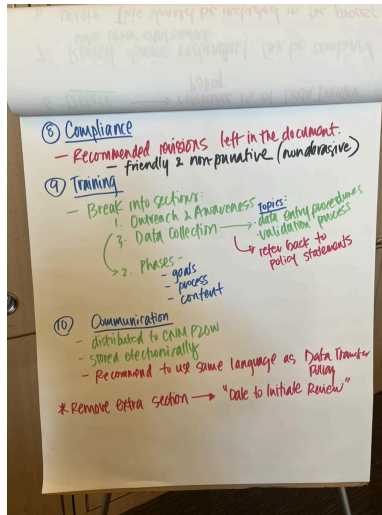 ⑧ Compliance
- Recommended revisions left in the document.
- friendly & non punative (nonabrasive)
⑨ Training
- Break into sections:
1. Outreach & Awareness
3. Data Collection →
Topics:
· data entry procedures
· validation process
↳ refer back to
policy statements
2. Phases -
- goals
- process
- content
⑩ Communication
- distributed to CNM
- stored electronically
- Recommend to use same language as Data Transfer
Policy
* Remove extra section → "Date to Initiate Review"